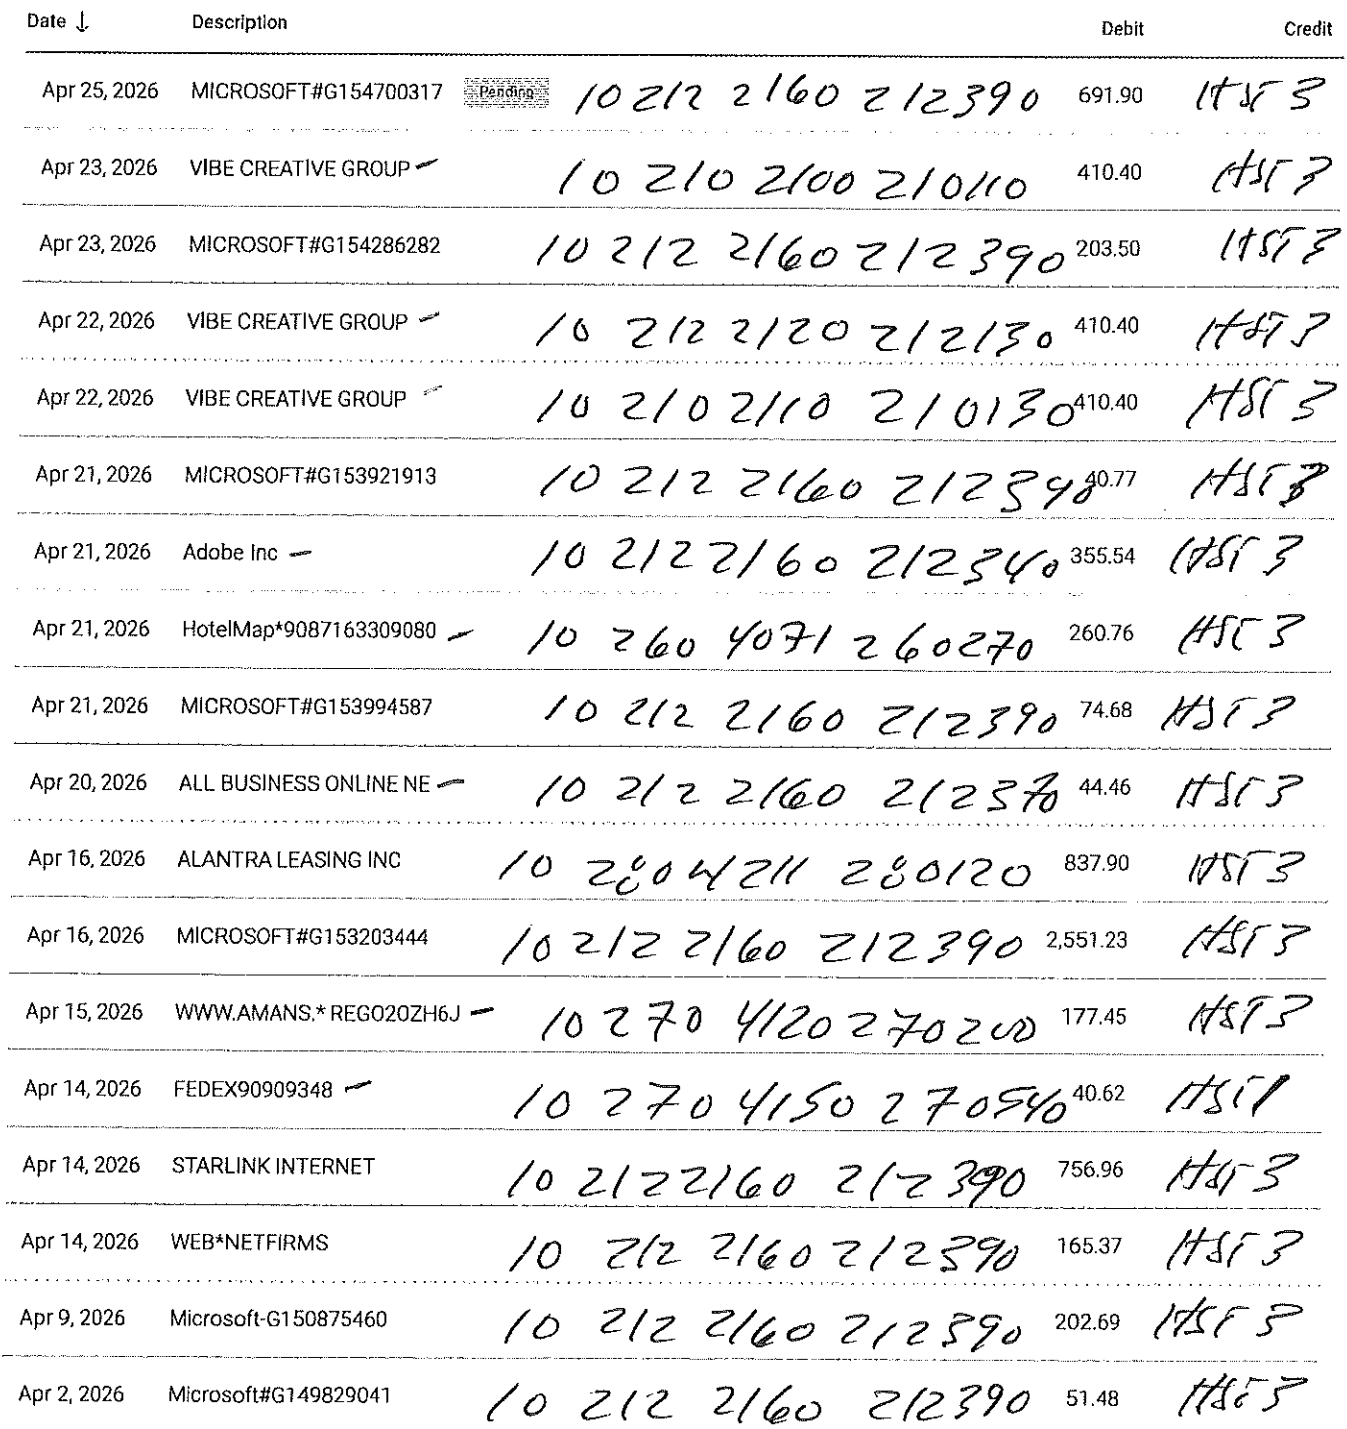 Date ↓ Description Debit Credit
Apr 25, 2026 MICROSOFT#G154700317 Pending 10 212 2160 212390 691.90 HST 3
Apr 23, 2026 VIBE CREATIVE GROUP 10 210 2100 210110 410.40 HST 3
Apr 23, 2026 MICROSOFT#G154286282 10 212 2160 212390 203.50 HST 3
Apr 22, 2026 VIBE CREATIVE GROUP 10 212 2120 212130 410.40 HST 3
Apr 22, 2026 VIBE CREATIVE GROUP 10 210 2110 210130 410.40 HST 3
Apr 21, 2026 MICROSOFT#G153921913 10 212 2160 212390 40.77 HST 3
Apr 21, 2026 Adobe Inc 10 212 2160 212340 355.54 HST 3
Apr 21, 2026 HotelMap*9087163309080 10 260 4071 260270 260.76 HST 3
Apr 21, 2026 MICROSOFT#G153994587 10 212 2160 212390 74.68 HST 3
Apr 20, 2026 ALL BUSINESS ONLINE NE 10 212 2160 212370 44.46 HST 3
Apr 16, 2026 ALANTRA LEASING INC 10 280 4211 280120 837.90 HST 3
Apr 16, 2026 MICROSOFT#G153203444 10 212 2160 212390 2,551.23 HST 3
Apr 15, 2026 WWW.AMANS.* REGO20ZH6J 10 270 4120 270200 177.45 HST 3
Apr 14, 2026 FEDEX90909348 10 270 4150 270540 40.62 HST 1
Apr 14, 2026 STARLINK INTERNET 10 212 2160 212390 756.96 HST 3
Apr 14, 2026 WEB*NETFIRMS 10 212 2160 212390 165.37 HST 3
Apr 9, 2026 Microsoft-G150875460 10 212 2160 212390 202.69 HST 3
Apr 2, 2026 Microsoft#G149829041 10 212 2160 212390 51.48 HST 3